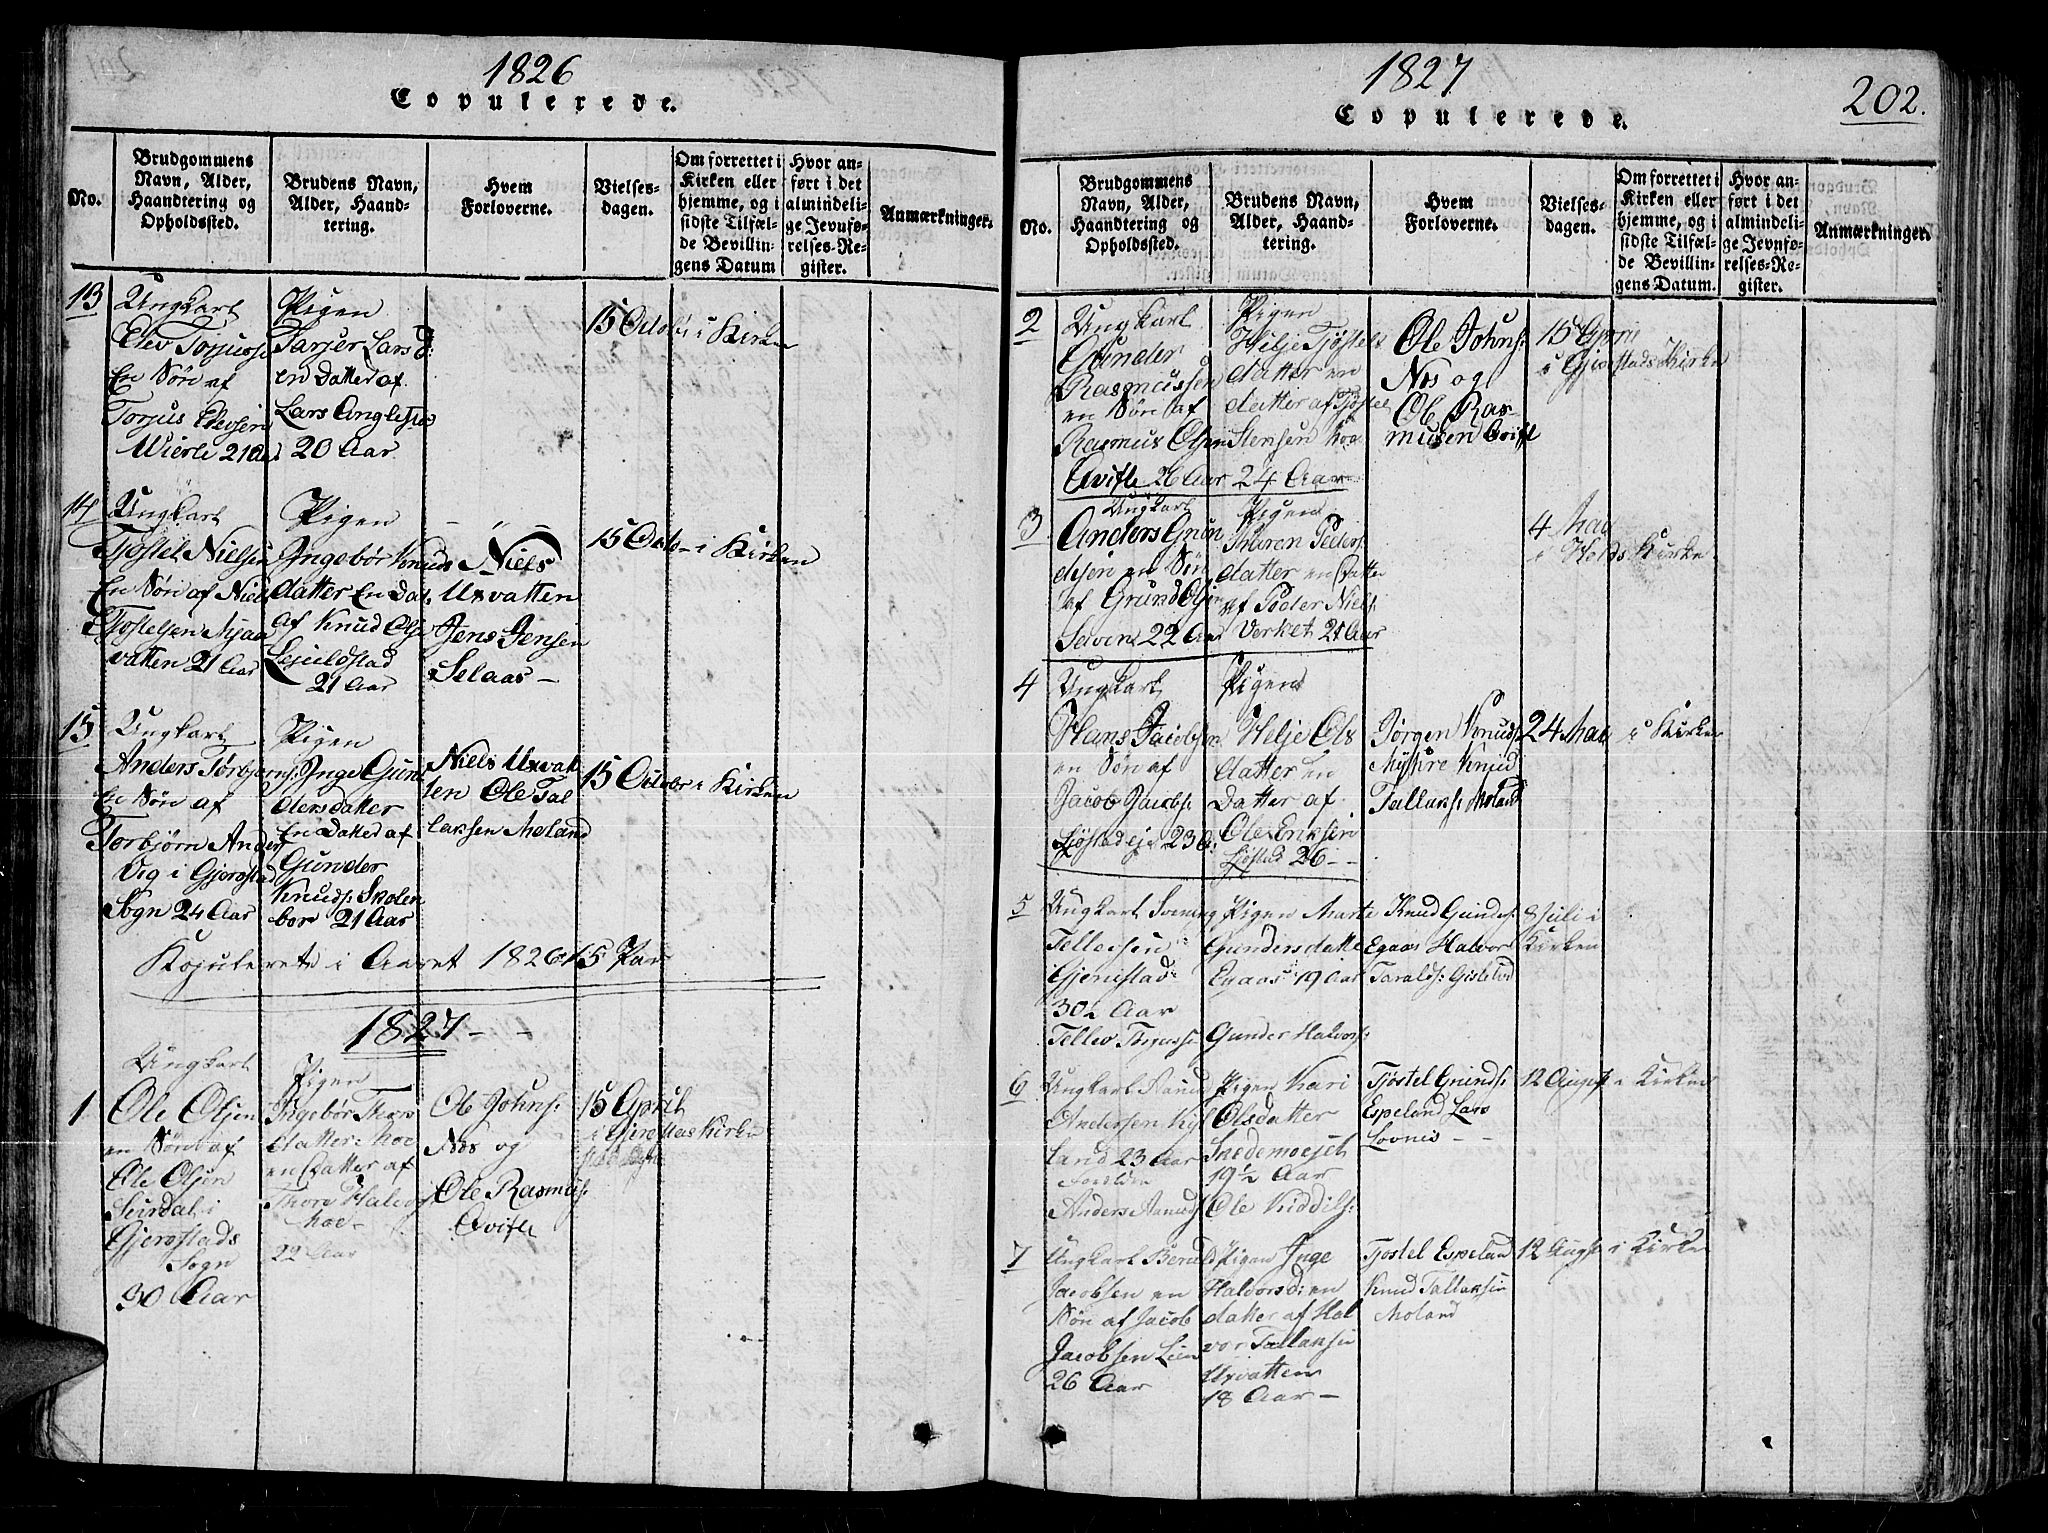 1826
Copulerede.
No.
Brudgommens
Navn, Alder,
Haandtering og
Opholdssted.
Brudens Navn,
Alder, Haand-
tering.
Hvem
Forloverne.
Vielses-
dagen.
Om forrettet i
Kirken eller
hjemme, og i
sidste Tilfæl-
de Bevillin-
gens Datum
Hvor an-
ført i det
almindeli-
ge Jevnfø-
relses-Re-
gister.
Anmærkninger.
13
Ungkarl
Elev Torjuss
En Søn af
Torjus Elevsen
Wierli 21 Aar
Pigen
Tarjer Lars d:
en Datter af
Lars
20 Aar
15 Octobr i Kirken
14
Ungkarl
Tjøstel Nielsen
En Søn af Niels
Tjøstelsen Mjaa
vatten 21 Aar
Pigen
Ingebør Knuds
datter En Dat.
af Knud Ols
Lejuldstad
21 Aar
Niels
Uxvatten
Jens Jensen
Selaas
15 Octo - i Kirken
15
Ungkarl
Anders Torbjørns:
En Søn af
Torbjørn Anders
Vig i Gjerestad
Sogn 24 Aar
Pigen
Inge Gun
dersdatter
En Datter af
Gunder
Knuds: Skolen
bor 21 Aar
Niels Uxvat
ten Ole Tal
laksen Moland
15 Octobr i Kirken
Kopulerete i Aaret 1826 15 Par
1827
1
Ungkarl
Ole Olsen
en Søn af
Ole Olsen
Surdal i
Gjerestads
Sogn
30 Aar
Pigen
Ingebør Thors
datter Moe
en Datter af
Thore Halvs
Moe
22 Aar
Ole Johns:
Næs og
Ole Rasmus:
Qvifte
15 April
i Gjerestas Kirke
1827
Copulerede.
202.
No.
Brudgommens
Navn, Alder,
Haandtering og
Opholdssted.
Brudens Navn,
Alder, Haand-
tering.
Hvem
Forloverne.
Vielses-
dagen.
Om forrettet i
Kirken eller
hjemme, og i
sidste Tilfæl-
de Bevillin-
gens Datum.
Hvor an-
ført i det
almindeli-
ge Jevnfø-
relses-Re-
gister.
Anmærkninger.
2
Ungkarl
Gunder
Rasmussen
en Søn af
Rasmus Olsen
Qvifte 26 Aar
Pigen
Helje Tjøstels
datter en
datter af Tjøstel
Stensen
24 Aar
Ole Johns:
Næs og
Ole Ras-
musen Qvift
15 April
i Gjerestads Kirke
3
Ungkarl
Anders Grun
desen en Søn
af Grund Olsen
Selven 22 Aar
Pigen
Maren Peders
datter en Datter
af Peder Niels
Verket 21 Aar
4 Mai
i Holds Kirke
4
Ungkarl
Hans Jacobsen
en Søn af
Jacob Jacobs:
23 A:
Pigen
Helje Ols
datter en
Datter af
Ole Eriksen
26 - -
Jørgen Knuds
Myhre Knud
Tallaks: Moland
24 Mai i Kirken
5
Ungkarl
Tellefsen
Gjerestad
30½ Aar
Pigen Marte
Gundersdatte
Egaas 19 Aar
Gunder Halvors:
Knud Gunders:
Egaas Halvor
Taralds:
8 Juli i
Kirken
6
Ungkarl Aanud
Andersen Kyl
land 23 Aar
Anders Aanuds
Pigen Kari
Olsdatter
19 ½ Aar
Ole Kiddils:
Tjøstel Grunds:
Espeland Lars
Lovnes - -
12 August i Kirken
7
Ungkarl Beruld
Jacobsen en
Søn af Jacob
Jacobsen Lien
26 Aar
Pigen Inge
Halvorsd: en
datter af Hal
vor Tallaksen
Uxvatten
18 Aar -
Tjøstel Espeland
Knud Tallaksen
Moland
12 August i Kirken